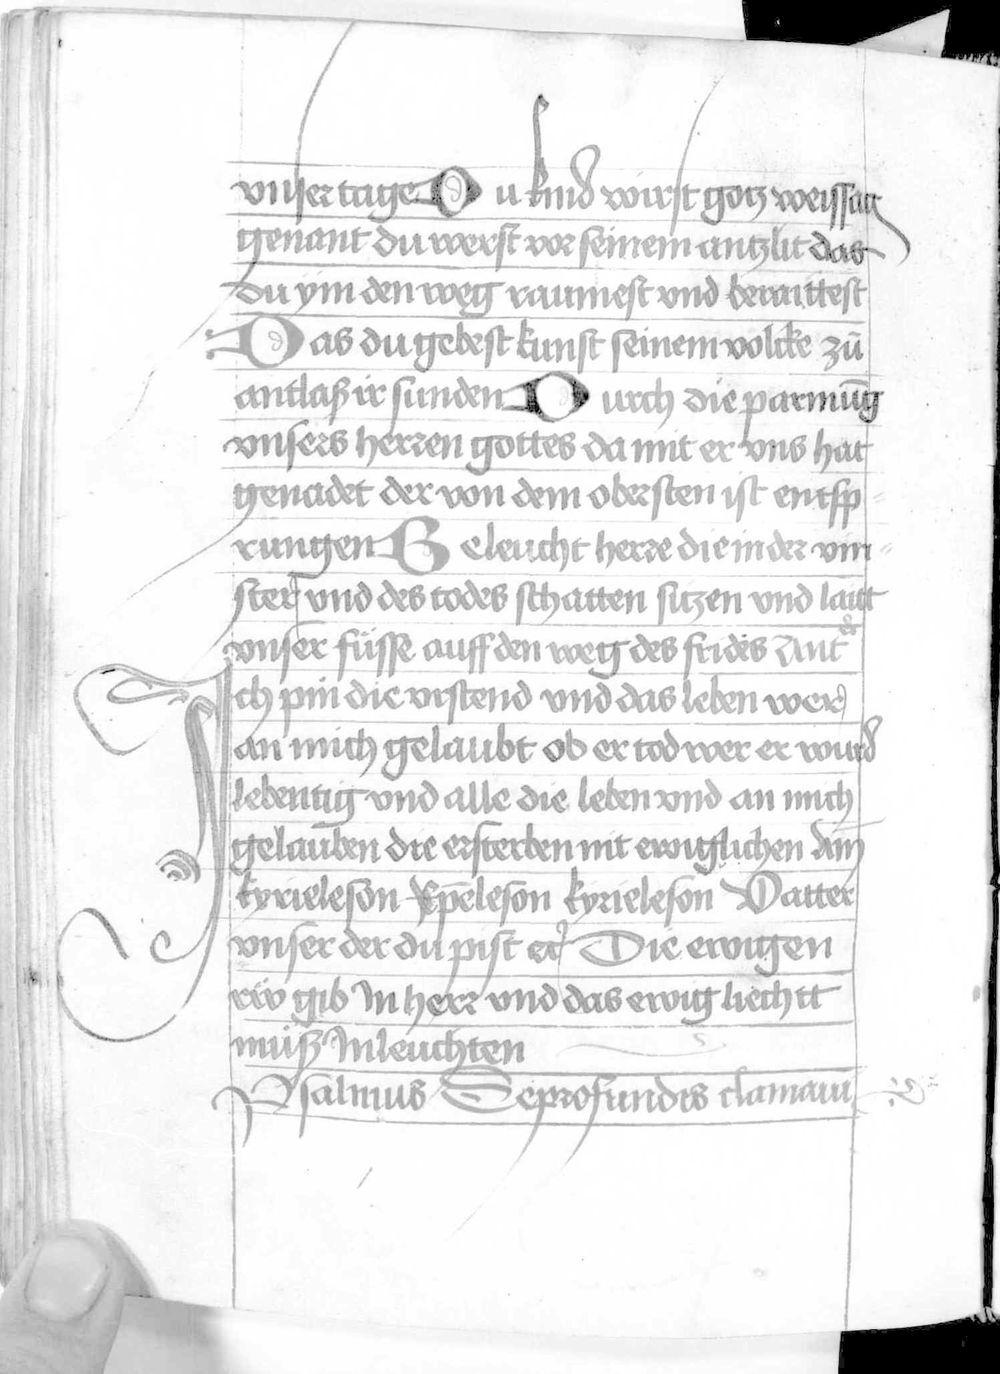 vnser tage Du kind wirst gotz weissag
genant du werst vor seinem antzlit das
du ym den weg raumest vnd beraittest
Das du gebest kunst seinem volcke zů
antlaß ir sunden Durch die parmūg
vnsers herren gottes da mit er vns hat
genadet der von dem obersten ist entsp
rungen Beleucht herre die in der vin
ster vnd des todes schatten sitzen vnd laitt
vnser füsse auff den weg des frides Ant
Ich pin die vrstend vnd das leben wer
an mich gelaubt ob er tod wer er wurd
lebentig vnd alle die leben vnd an mich
gelauben die ersterben nit ewiglichen Am
kyrieleson Xp̄eleson kyrieleson Vatter
vnser der du pist ꝛc Die ewigen
rẃ gib In herr vnd das ewig liechtt
müß In leuchten
Psalmus De profundis clamaui